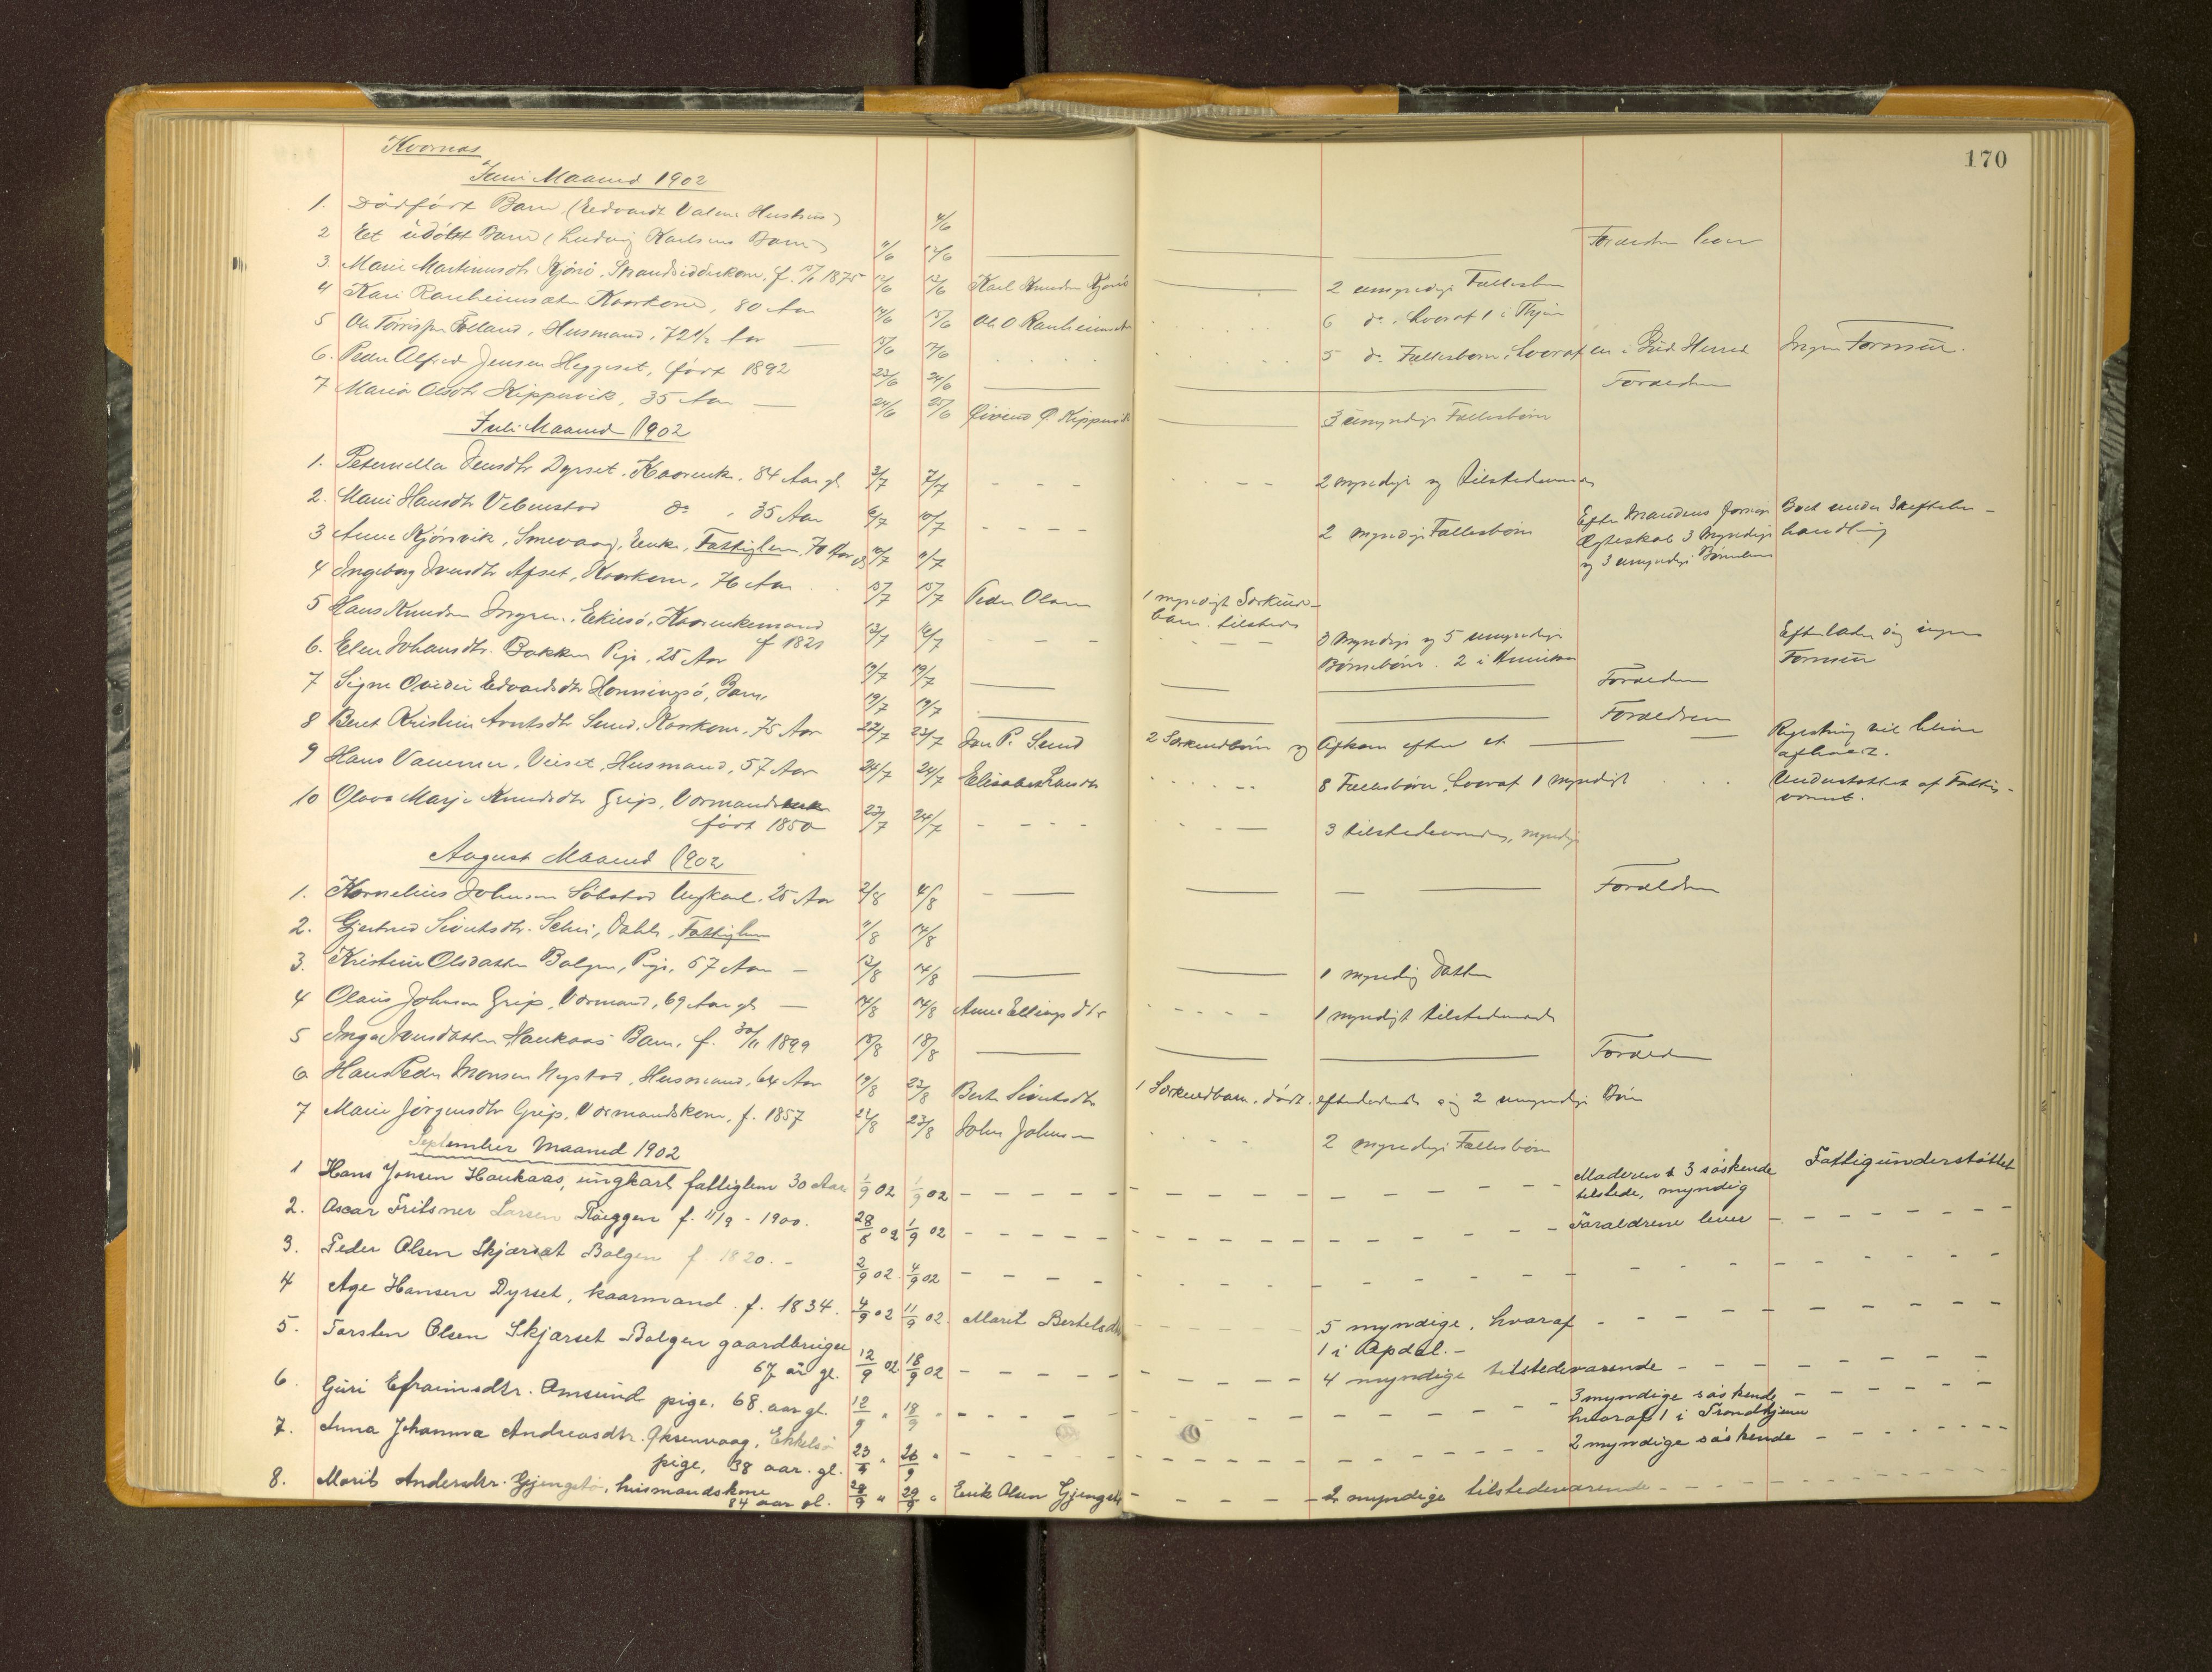 170
Kvernes
Juni Maaned 1902
1. Dødfødt Barn (Edvardt Valens Hustrus) 4/6
2 Et udøbt Barn (Ludvig Karlsens Barn) 11/6 12/6 Forældren lever
3. Marie Martinusdtr Kjönö, Strandsidderkone, f. 1875 12/6 13/6 Karl Knudsen Kjönö 2 umyndige Fællesbørn
4 Kari Ranheimsæter Kaarkone, 80 Aar 14/6 15/6 Ole O Ranheimsæt 6 do. hvoraf 1 i Thjem
5 Ole Torrisen Folland, Husmand, 72 1/2 Aar 15/6 17/6 5 do Fællesbørn, hvoraf en i Bud Herred Ingen Formue.
6. Peder Alfred Jensen Heggeset, født 1892 23/6 24/6 Forældren
7 Maria Olsdtr Kippervik, 35 Aar 24/6 25/6 Eivind O. Kippervik 3 umyndige Fællesbørn
Juli Maaned 1902
1. Peternella Jensdtr Dyrset, Kaarenk. 84 Aar gl. 3/7 7/7 2 myndige og tilstedeværende
2. Marie Hansdtr Vebenstad do , 35 Aar 6/7 10/7 2 myndige Fællesbörn Efter Mandens forrige Boet under Skiftebe-
Ægteskab 3 Myndige handling
og 3 umyndige Børnebørn
3 Anne Kjörsvik, Smevaag, Enke, Fattiglem, 70 Aar gl 10/7 11/7
4 Ingeborg Iversdtr Apset, Kaarkone, 76 Aar 15/7 15/7 Peder Olsen 1 myndigt Særkuld-
barn tilstede
5 Hans Knudsen Ingen, Ekkilsö, Kaarenkemand
f 1821 13/7 16/7 3 Myndige og 5 umyndige Efterlader sig ingen
Børnebörn. 2 i Amerika Formue
6. Elen Johansdtr. Bakken Pige, 25 Aar 17/7 19/7 Forældren
7 Signe Ovidie Edvardsdtr Honningsö, Barn 19/7 19/7 Forældren
8 Beret Kristine Arntsdtr Sund, Kaarkone, 75 Aar 22/7 23/7 Jon P. Sund 2 Særkuldbörn og Afkom efter et Registring vil blive
afholdt.
9 Hans Vammen, Veiset, Husmand, 57 Aar 24/7 24/7 Elisabet Larsdtr 8 Fællesbörn, hvoraf 1 myndigt Understøttet af Fattig-
væsenet.
10 Olava Marje Knudsdtr Grip, Vormandsenke
født 1850 23/7 24/7 3 tilstedeværende, myndige
August Maaned 1902
1. Kornelius Johnsen Löbstad Ungkarl, 25 Aar 2/8 4/8 Forældren
2. Gjertrud Sivertsdtr. Schei, Dahle, Fattiglem 11/8 14/8
3. Kristine Olsdatter Bolgen, Pige, 57 Aar - 12/8 14/8 1 myndig Datter
4 Olaus Johnsen Grip, Vormand, 69 Aar gl 14/8 14/8 Anne Ellingsdtr 1 myndigt tilstedeværende
5 Inga Arnesdatter Haukaas Barn, f. 30/11 1899 15/8 18/8 Forældren
6 Hans Peder Monsen Nystad, Husmand, 64 Aar 19/8 23/8 Berte Sivertsdtr 1 Særkuldbarn, dødt. efterladende sig 2 umyndige Børn
7 Marie Jörgensdtr Grip, Vormandskone, f. 1857 21/8 23/8 John Johnsen 2 myndige Fællesbörn
September Maaned 1902
1 Hans Jonsen Haukaas, ungkarl fattiglem 30 Aar 1/9 02 1/9 02 Maderen & 3 söskende Fattigunderstöttet
tilstede, myndig
2. Oscar Fritsner Larsen Röeggen f. 11/9 - 1900. 28/8 02 1/9 02 Faraldrene lever
3. Peder Olsen Skjærset Bolgen f. 1820. - 2/9 02. 4/9 02
4 Age Hansen Dyrset, kaarmand. f. 1834. 4/9 02 11/9 02. Marit Bertelsdtr 5 myndige, hvoraf
1 i Opdal. -
5. Torsten Olsen Skjærset Bolgen gaardbruger
67 år gl. 12/9 02 18/9 02 4 myndige tilstedeværende
6. Guri Efraimsdtr. Omsund pige, 68 aar gl. 12/9 " 18/9 " 3 myndige söskende
hvoraf 1 i Trondhjem
7. Anna Johanna Andreasdtr. Oksenvaag, Ekkelsö
pige, 38 aar. gl. 23/9 " 26/9 " 2 myndige söskende
8. Marit Andersdtr. Gjengstö, husmandskone
84 aar gl. 28/9 " 29/9 " Erik Olsen Gjengstö 2 myndige tilstedeværende